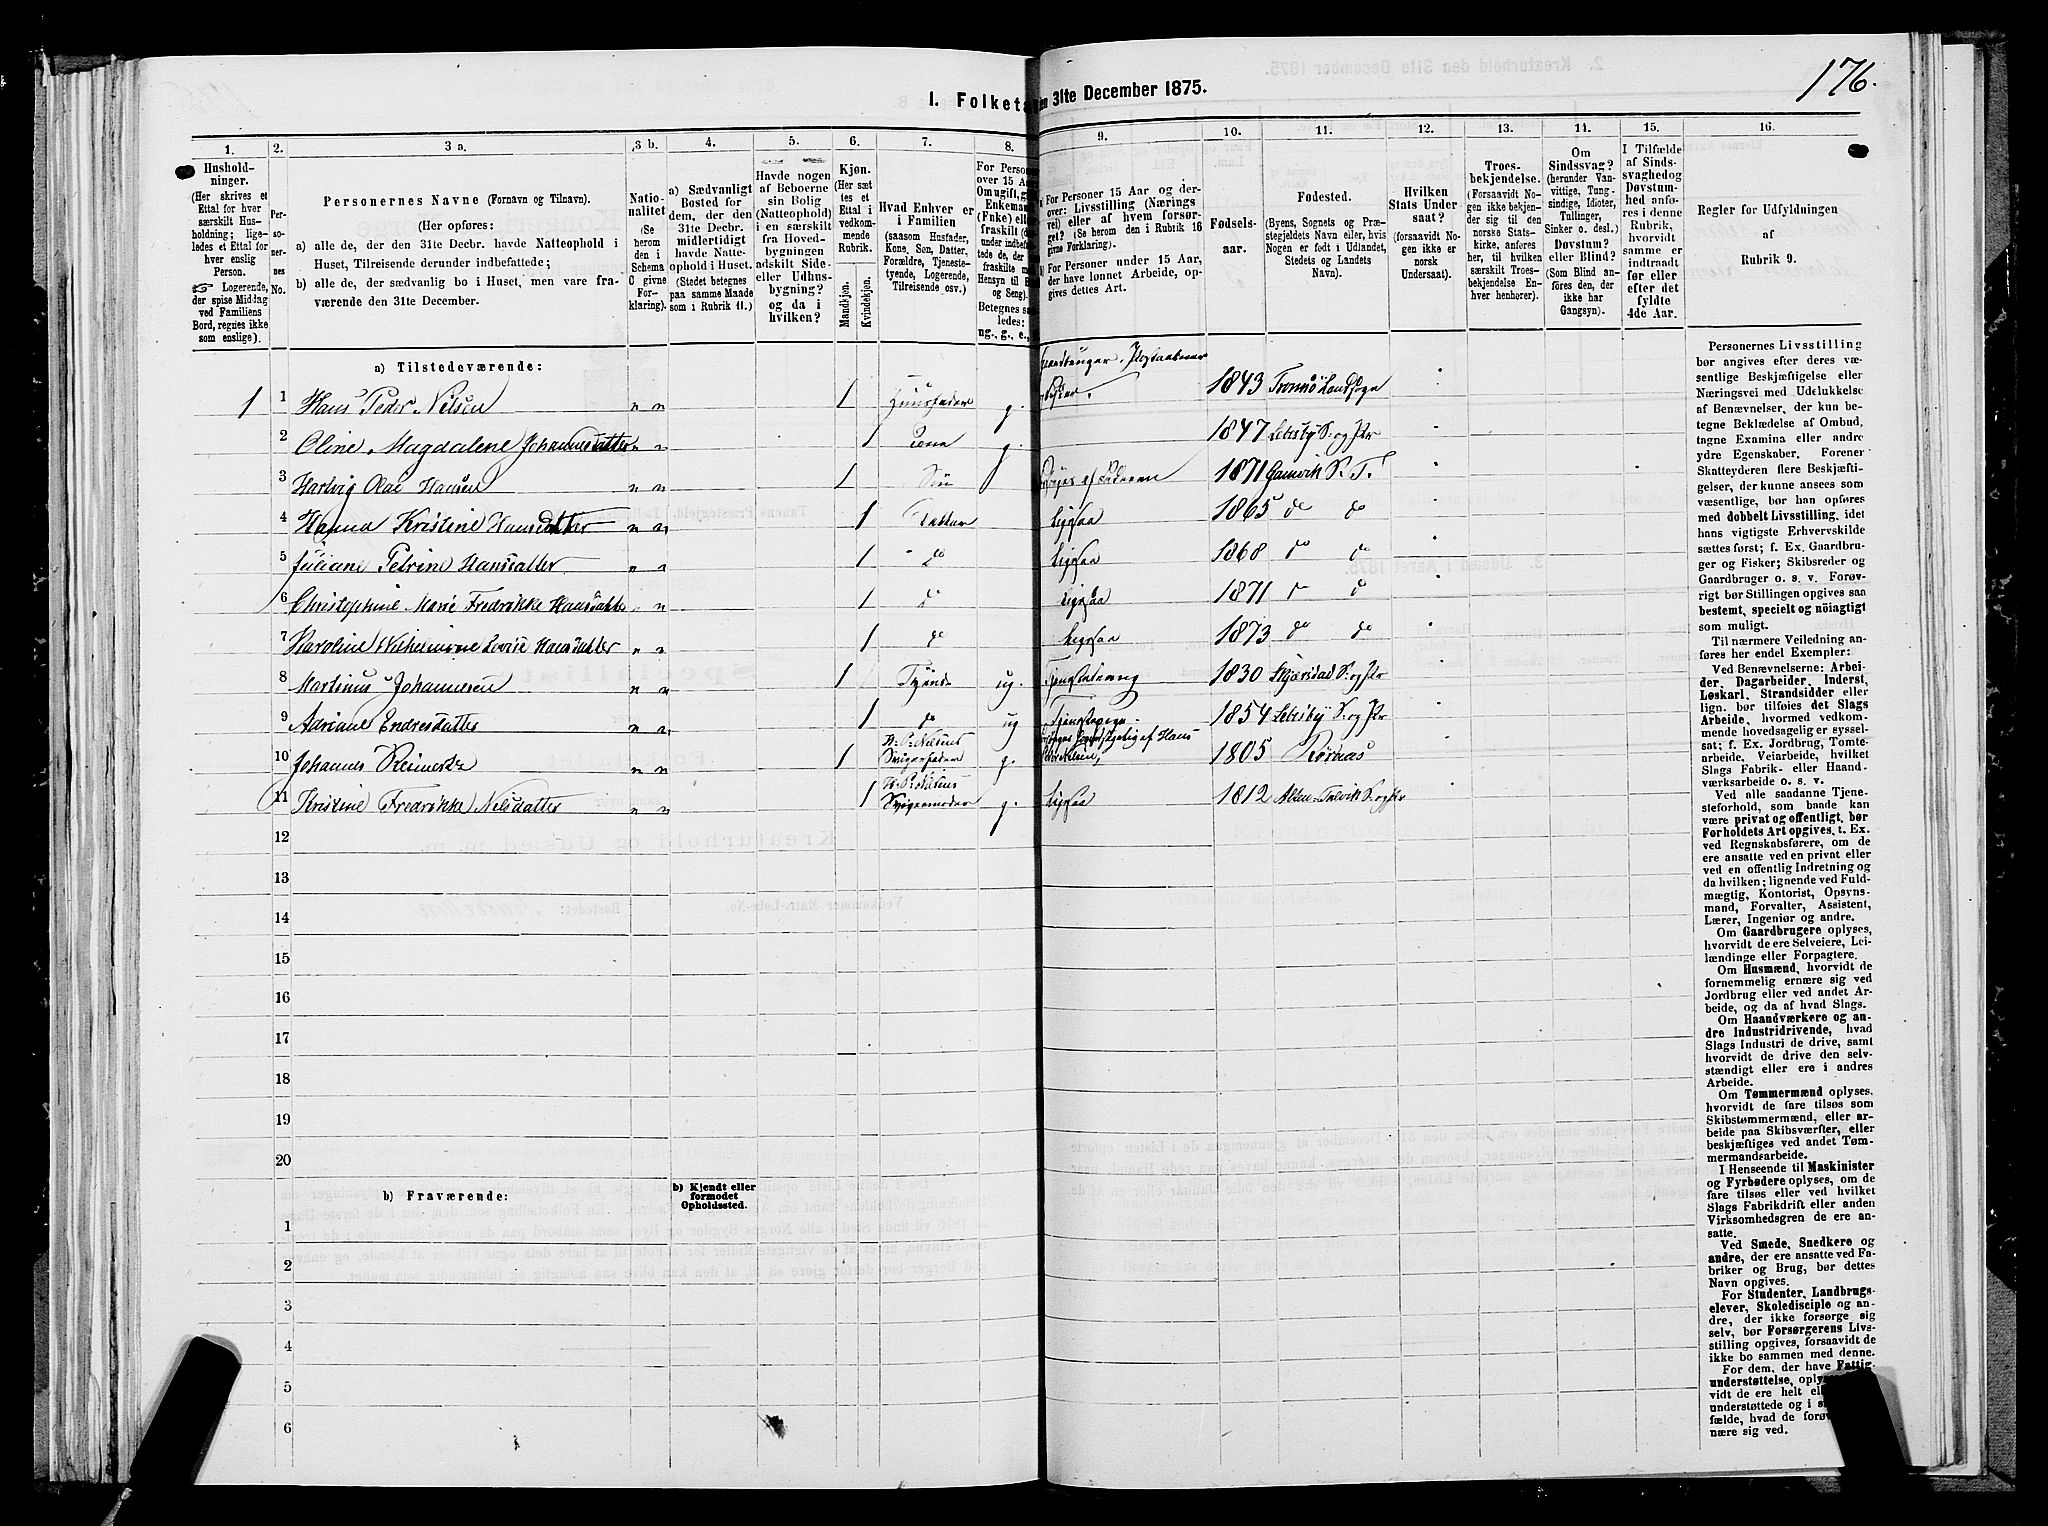 176.
I. Folketa en 31te December 1875.
1. 2. 3 a. 3 b. 4. 5. 6. 7. 8. 9. 10. 11. 12. 13. 14. 15. 16.
Hushold-
ninger.
(Her skrives et
Ettal for hver
særskilt Hus-
holdning; lige-
ledes et Ettal for
hver enslig
Person.
☞ Logerende,
der spise Middag
ved Familiens
Bord, regnes ikke
som enslige).
Per-
so-
ner-
nes
No.
Personernes Navne (Fornavn og Tilnavn).
(Her opføres:
a) alle de, der den 31te Decbr. havde Natteophold i
Huset, Tilreisende derunder indbefattede;
b) alle de, der sædvanlig bo i Huset, men vare fra-
værende den 31te December.
Natio-
nalitet
(Se
herom
den i
Schema
C givne
For-
klaring).
a) Sædvanligt
Bosted for
dem, der den
31te Decbr.
midlertidigt
havde Natte-
ophold i Huset.
(Stedet betegnes
paa samme Maade
som i Rubrik 11.)
Havde nogen
af Beboerne
sin Bolig
(Natteophold)
i en særskilt
fra Hoved-
bygningen
adskilt Side-
eller Udhus-
bygning?
og da i
hvilken?
Kjøn.
(Her sæt-
tes et
Ettal i
vedkom-
mende
Rubrik.
Mandkjøn.
Kvindekjøn.
Hvad Enhver er
i Familien
(saasom Husfader,
Kone, Søn, Datter,
Forældre, Tjeneste-
tyende, Logerende,
Tilreisende osv.)
For Person
over 15 Aa
Om ugift, g
Enkeman
(Fnke) elle
fraskilt (d
under indbefa
tede de, der
fraskilte m
Hensyn til B
og Seng).
Betegnes s
ledes:
ug., g., e.,
For Personer 15 Aar og der-
over: Livsstilling (Nærings
vei) eller af hvem forsør-
get? (Se herom den i Rubrik 16
givne Forklaring).
For Personer under 15 Aar,
der have lønnet Arbeide, op-
gives dettes Art.
Fødsels-
aar.
Fødested.
(Byens, Sognets og Præ-
stegjeldets Navn eller, hvis
Nogen er født i Udlandet,
Stedets og Landets
Navn).
Hvilken
Stats Under
saat?
(forsaavidt No-
gen ikke er
norsk
Undersaat).
Troes-
bekjendelse.
(Forsaavidt No-
gen ikke bekjen-
der sig til den
norske Stats-
kirke, anføres
her, til hvilken
særskilt Troes-
bekjendelse En-
hver henhører).
Om
Sindssvag?
(herunder Van-
vittige, Tung-
sindige, Idioter,
Tullinger,
Sinker o. desl.)
Døvstum?
(Som Blind an-
føres den, der
ikke har
Gangsyn).
I Tilfælde
af Sinds-
svaghedog
Døvstum-
hed anfø-
res i denne
Rubrik,
hvorvidt
samme er
indtraadt
før eller
efter det
fyldte
4de Aar.
Regler for Udfyldningen
af
Rubrik 9.
a) Tilstedeværende:
1 1 Hans Peder Nilsen " " 1 Huusfader g. 1843 Tromsø Landsogn
2 Oline Magdalene Johannesdatter " " 1 Kone g. 1847 Lebesby S. og Pr
3 Hartvig Olai Hansen " " 1 Søn 1871 Gamvik S. T.
4 Hanna Kristine Hansdatter " " 1 Datter Ligesaa 1865 do do
5 Juliane Petrine Hansdatter " " 1 do Ligesaa 1868 do do
6 Christophine Marie Fredrikke Hansdatter " " 1 do Ligesaa 1871 do do
7 Karoline Wilhelmine Lovise Hansdatter " " 1 do Ligesaa 1873 do do
8 Martinus Johannesen " " 1 Tyende ug. Tjenestedreng 1830 Skjerstad S. og Pr
9 Adriane Endresdatter " " 1 do ug Tjenestepige 1854 Lebesby S. og Pr
10 Johannes " " 1 H. P. Nilsens Svigerfader g. af Hans 1805 Rørnæs
11 Kristine Fredrikke Nilsdatter " " 1 H. P. Nilsens Svigermoder g. Ligesaa 1812 Alten-Talvik S. og Pr
12
13
14
15
16
17
18
19
20
b) Fraværende:
b) Kjendt eller
formodet
Opholdssted.
1
2
3
4
5
6
Personernes Livsstilling
bør angives efter deres væ-
sentlige Beskjæftigelse eller
Næringsvei med Udelukkelse
af Benævnelser, der kun be-
tegne Beklædelse af Ombud,
tagne Examina eller andre
ydre Egenskaber. Forener
Skatteyderen flere Beskjæfti-
gelser, der kunne ansees som
væsentlige, bør han opføres
med dobbelt Livsstilling, idet
hans vigtigste Erhvervskilde
sættes først; f. Ex. Gaardbru-
ger og Fisker; Skibsreder og
Gaardbruger o. s. v. Forøv-
rigt bør Stillingen opgives saa
bestemt, specielt og nöiagtigt
som muligt.
Til nærmere Veiledning an-
føres her endel Exempler:
Ved Benævnelserne: Arbei-
der, Dagarbeider, Inderst,
Løskarl, Strandsidder eller
lign. bør tilføies det Slags
Arbeide, hvormed vedkom-
mende hovedsagelig er syssel-
sat; f. Ex. Jordbrug, Tomte-
arbeide, Veiarbeide, hvilket
Slags Fabrik- eller Haand-
værksarbeide o. s. v.
Ved alle saadanne Tjene-
steforhold, som baade kan
være privat og offentligt, bør
Forholdets Art opgives, t. Ex.
ved Regnskabsførere, om de
ere ansatte ved en privat eller
ved en offentlig Indretning og
da hvilken; lignende ved Fuld-
mægtig, Kontorist, Opsyns-
mand, Forvalter, Assistent,
Lærer, Ingeniør og andre.
Om Gaardbrugere oplyses,
hvorvidt de ere Selveiere, Lei-
lændinge eller Forpagtere.
Om Husmænd, hvorvidt de
fornemmelig ernære sig ved
Jordbrug eller ved andet Ar-
beide, og da af hvad Slags.
Om Haandværkere og an-
dre Industridrivende, hvad
Slags Industri de drive, samt
hvorvidt de drive den selv-
stændigt eller ere i andres
Arbeide.
Om Tømmermænd oplyses,
hvorvidt de fare tilsøs som
Skibstømmermænd, eller ar-
beide paa Skibsværfter, eller
beskjæftiges ved andet Tøm-
mermandsarbeide.
I Henseende til Maskinister
og Fyrbødere oplyses, om de
fare tilsøs eller ved hvilket
Slags Fabrikdrift eller anden
Virksomhedsgren de ere an-
satte.
Ved Smede, Snedkere og
andre, der ere ansatte ved Fa-
briker og Brug, bør dettes
Navn opgives.
For Studenter, Landbrugs-
elever, Skoledisciple og an-
dre, der ikke forsørge sig
selv, bør Forsørgerens Livs-
stilling opgives, forsaavidt de
ikke bo sammen med denne.
For dem, der have Fattig-
understøttelse, oply
vidt de ere helt el
understøttede og i s
fælde, hvad de forøv
nære sig ved.